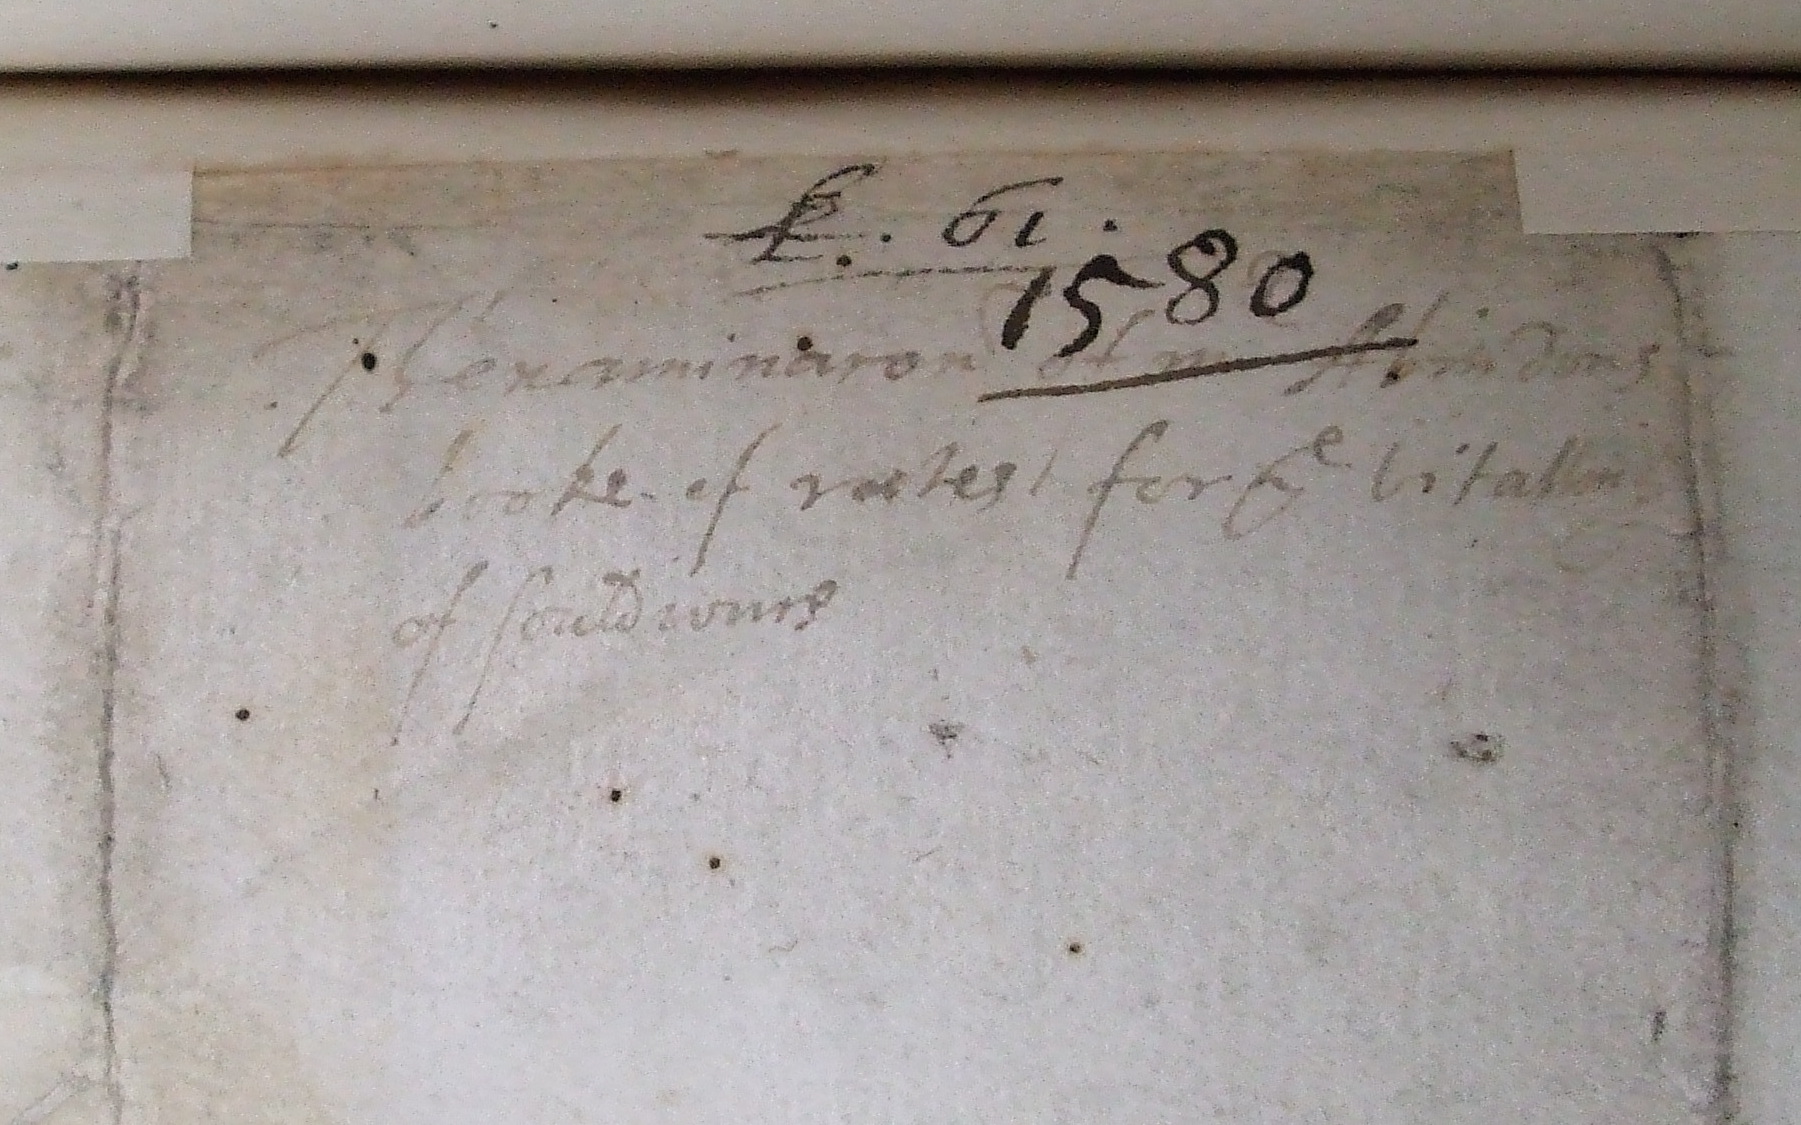 . 61 .
1580
Thexaminacon of mr
booke of rates for ye vitaling
of souldiours